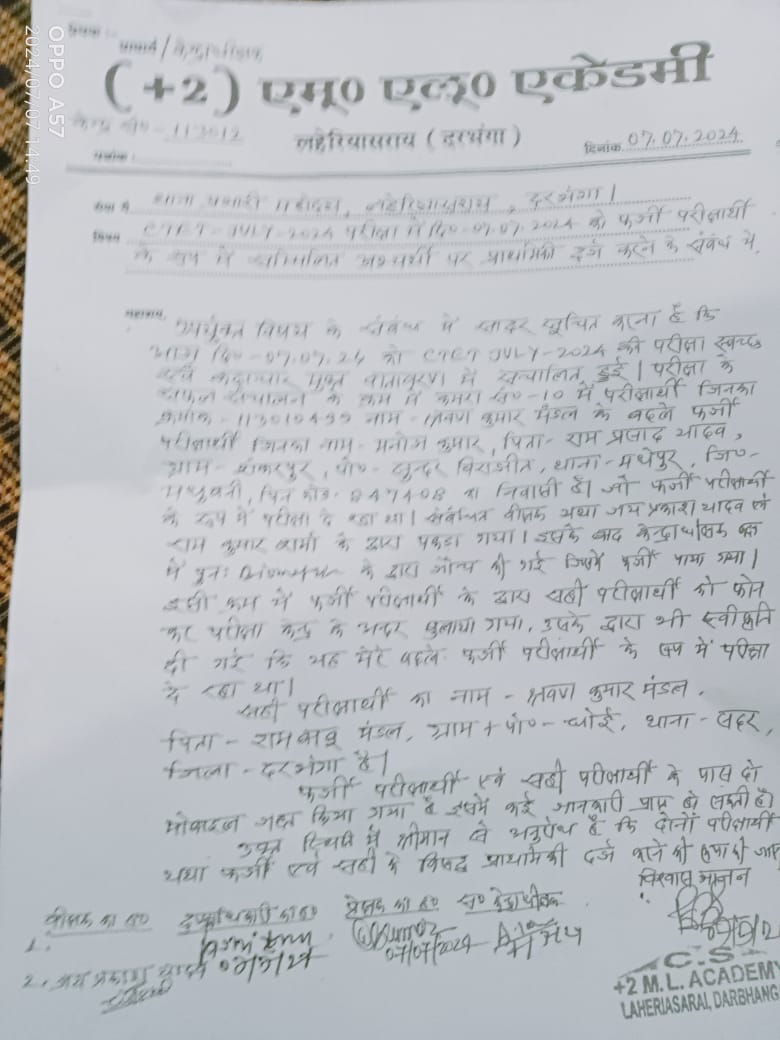 प्रेषक :-
प्राचार्य / केन्द्राधीक्षक
(+2) एम्० एल्० एकेडमी
केन्द्र सं०- 113012
लहेरियासराय (दरभंगा)
पत्रांक :
दिनांक 07.07.2024
सेवा में थाना प्रभारी महोदय, लहेरियासराय, दरभंगा।
विषय CTET-JULY-2024 परीक्षा में दि०-07.07.2024 को फर्जी परीक्षार्थी
के रूप में सम्मिलित अभ्यर्थी पर प्राथमिकी दर्ज करने के संबंध में.
महाशय,
उपर्युक्त विषय के संबंध में सादर सूचित करना है कि
आज दि०-07.07.24 को CTET JULY-2024 की परीक्षा स्वच्छ
एवं कदाचार मुक्त वातावरण में संचालित हुई। परीक्षा के
सफल संचालन के क्रम में कमरा सं०-10 में परीक्षार्थी जिनका
क्रमांक-113010499 नाम- श्रवण कुमार मंडल के बदले फर्जी
परीक्षार्थी जिनका नाम- मनोज कुमार, पिता- राम प्रसाद यादव,
ग्राम- शंकरपुर, पो०- सुन्दर विराजीत, थाना- मधेपुर, जि०-
मधुबनी, पिन कोड- 847408 का निवासी है। जो फर्जी परीक्षार्थी
के रूप में परीक्षा दे रहा था। संबंधित वीक्षक यथा जय प्रकाश यादव एवं
राम कुमार शर्मा के द्वारा पकड़ा गया। इसके बाद केन्द्राधीक्षक कक्ष
में पुनः Biometric के द्वारा जाँच की गई जिसमें फर्जी पाया गया।
इसी क्रम में फर्जी परीक्षार्थी के द्वारा सही परीक्षार्थी को फोन
कर परीक्षा केन्द्र के अन्दर बुलाया गया, उसके द्वारा भी स्वीकृति
दी गई कि यह मेरे बदले फर्जी परीक्षार्थी के रूप में परीक्षा
दे रहा था।
सही परीक्षार्थी का नाम - श्रवण कुमार मंडल,
पिता - रामबाबू मंडल, ग्राम + पो०- धोई, थाना - सदर,
जिला - दरभंगा है।
फर्जी परीक्षार्थी एवं सही परीक्षार्थी के पास दो
मोबाइल जब्त किया गया है इसमें कई जानकारी प्राप्त हो सकती है।
उक्त स्थिति में श्रीमान से अनुरोध है कि दोनों परीक्षार्थी
यथा फर्जी एवं सही के विरुद्ध प्राथमिकी दर्ज करने की कृपा की जाए
विश्वास भाजन
वीक्षक का ह०
प्रेक्षक का ह० स० केन्द्राधीक्षक
1.
07/07/2024
2. जय प्रकाश यादव
C.S.
+2 M.L. ACADEMY
LAHERIASARAI, DARBHANG
OPPO A57
2024/07/07 14:49